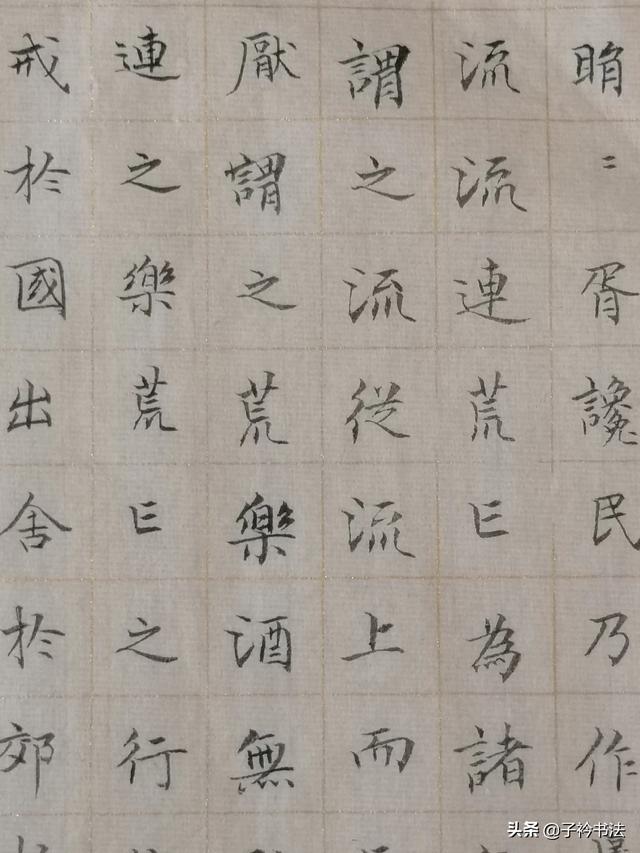 睊〻胥讒民乃作
流流連荒亡為諸
謂之流從流上而
厭謂之荒樂酒無
連之樂荒亡之行
戒於國出舍於郊
头条 @子衿书法